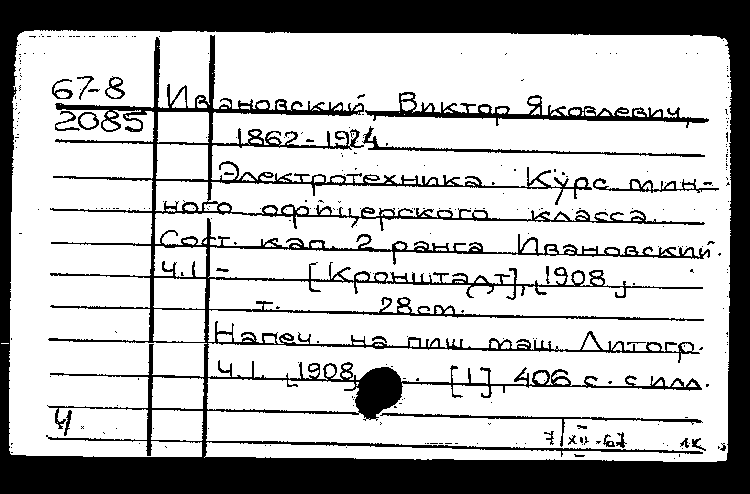 67-8
2085
Ивановский, Виктор Яковлевич,
1862-1924.
Электротехника. Курс мин-
ного офицерского класса.
Сост. кап. 2 ранга Ивановский.
Ч.1 - [Кронштадт], 1908.
т. 28 cm.
Напеч. на пиш. маш. Литогр.
Ч.1. 1908. [1], 406 с. с илл.
Ч
7/XII-67